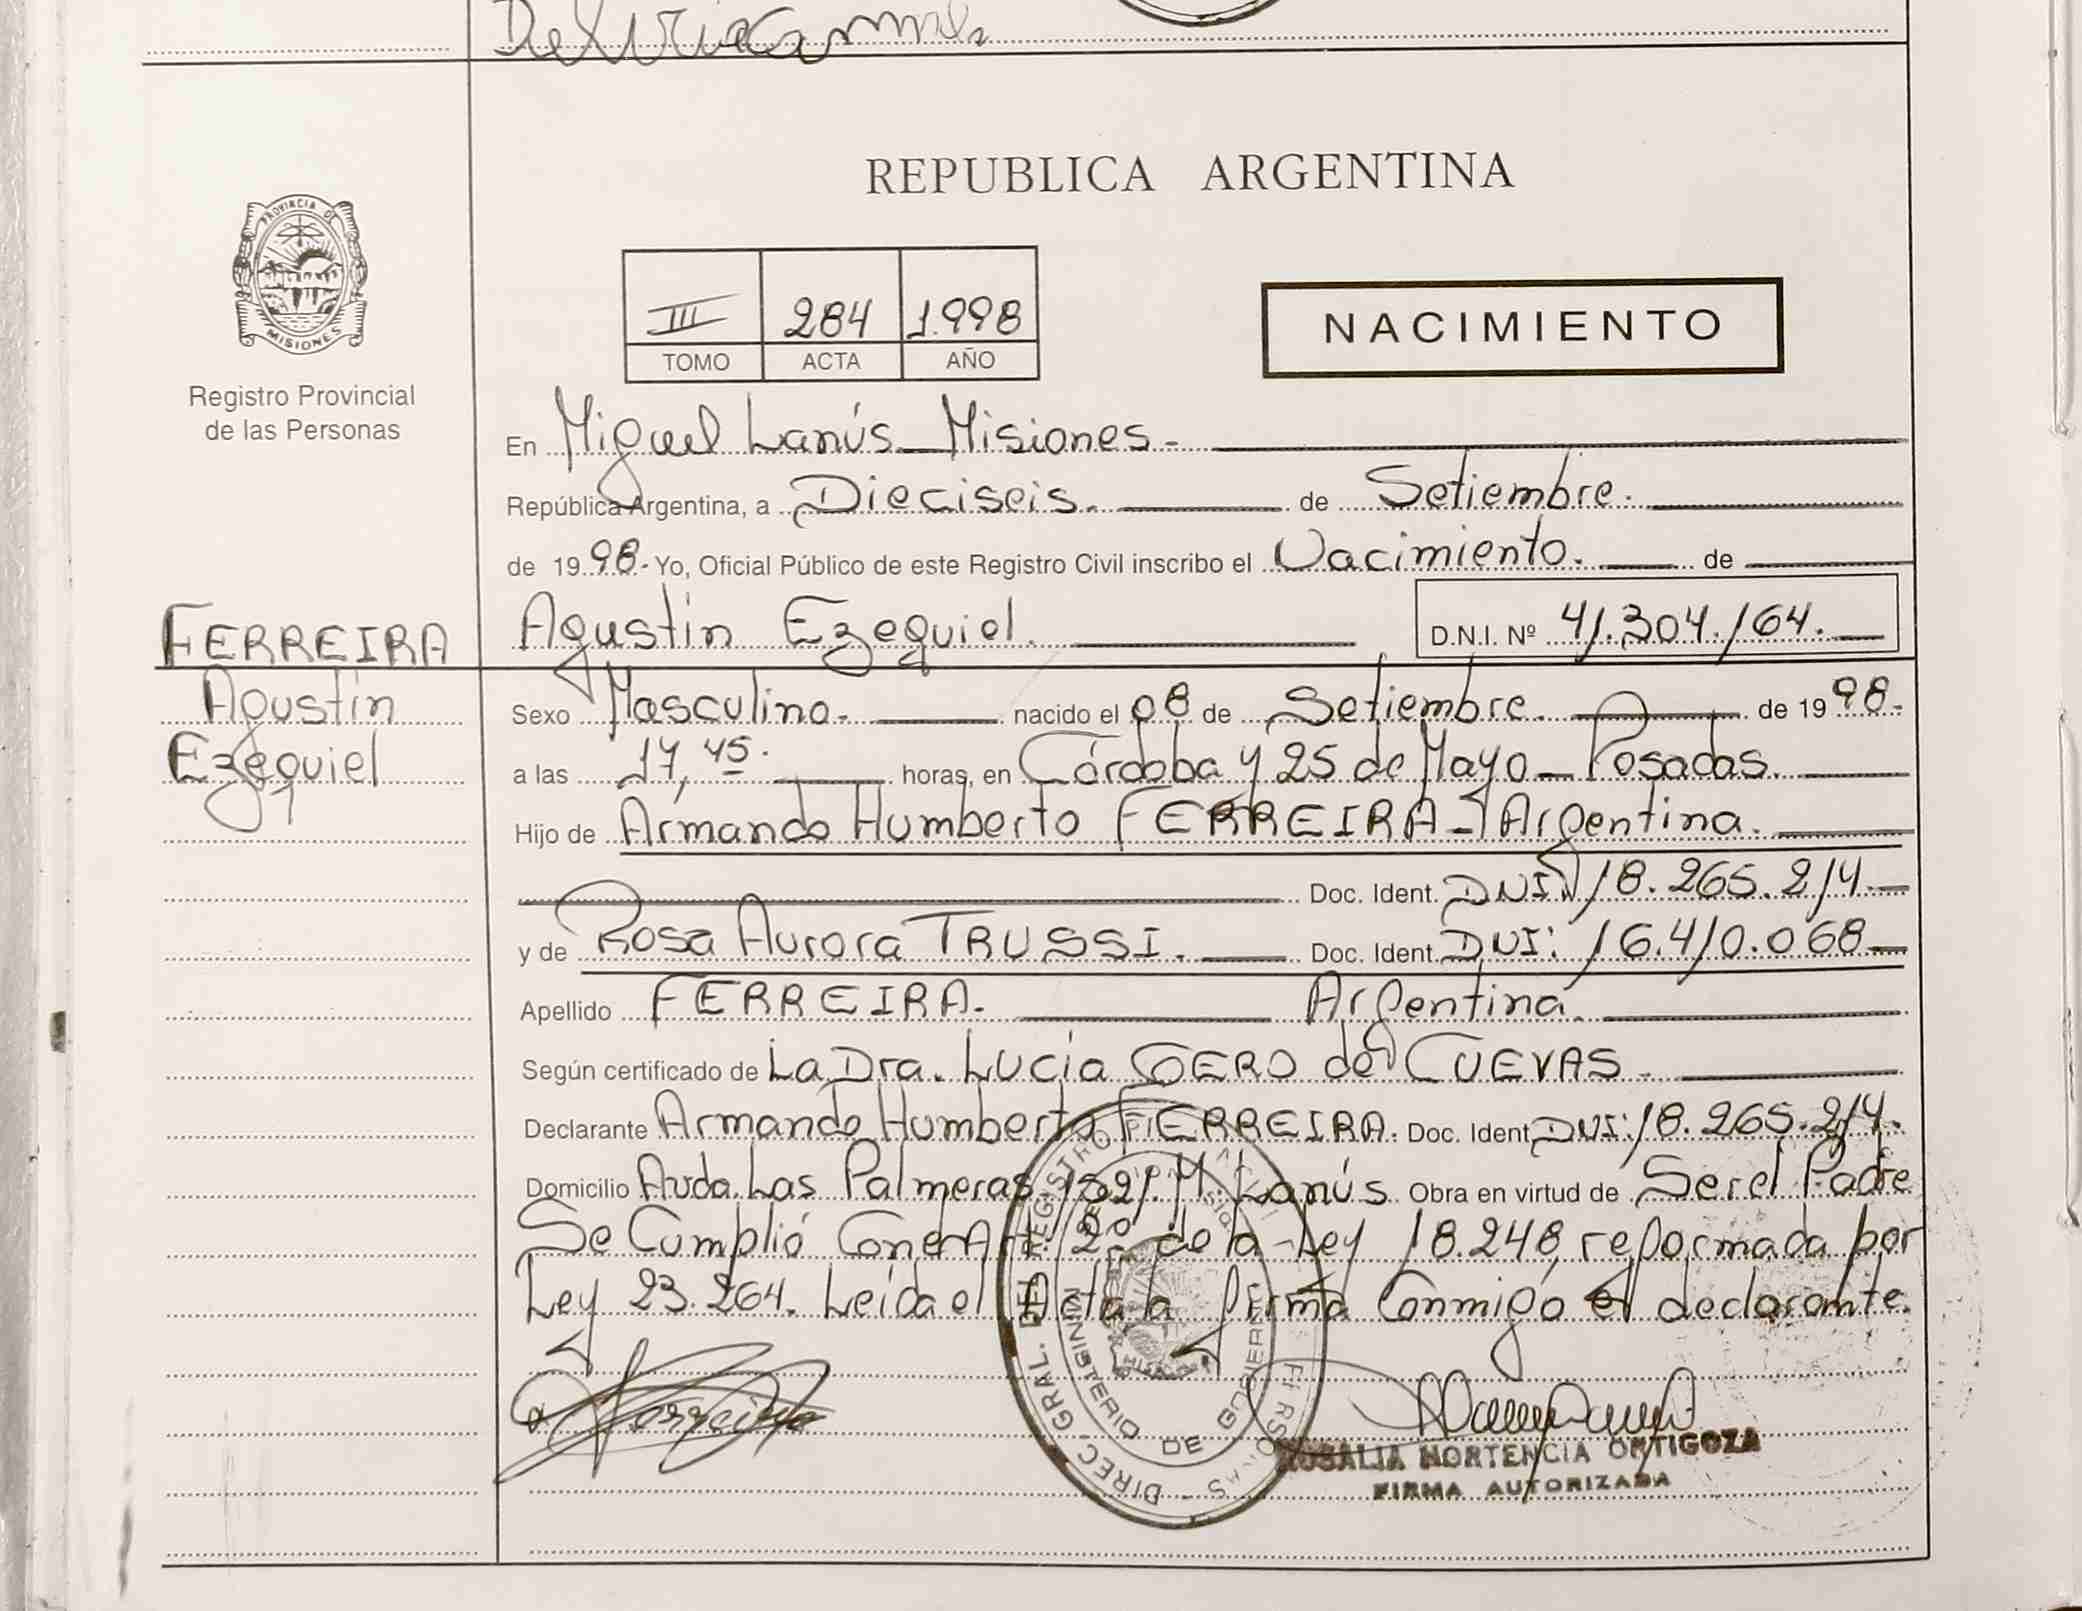 PROVINCIA DE
MISIONES
Registro Provincial
de las Personas
REPUBLICA ARGENTINA
III 284 1.998
TOMO ACTA AÑO
NACIMIENTO
En Miguel Lanús - Misiones.-
República Argentina, a Dieciseis. de Setiembre.
de 19 98.- Yo, Oficial Público de este Registro Civil inscribo el Nacimiento. de
FERREIRA
Agustín
Ezequiel
Agustín Ezequiel. D.N.I. Nº 41.304.164.
Sexo Masculino. nacido el 08 de Setiembre. de 19 98.-
a las 17,45. horas, en Córdoba y 25 de Mayo - Posadas.
Hijo de Armando Humberto FERREIRA - Argentina.
Doc. Ident. DNI: 18.265.214
y de Rosa Aurora TRUSSI. Doc. Ident. DNI: 16.410.068
Apellido FERREIRA. Argentina.
Según certificado de La Dra. Lucía GERO de CUEVAS
Declarante Armando Humberto FERREIRA. Doc. Ident. DNI: 18.265.214.
Domicilio Avda. Las Palmeras M. Lanús Obra en virtud de Ser el Padre
Se Cumplió Con el Art. 12º de la Ley 18.248, reformada por
Ley 23.264. Leída el Acta la firma Conmigo el declarante.
MINISTERIO DE GOBIERNO
DIREC. GRAL. DEL REGISTRO
ROSALIA HORTENCIA ORTIGOZA
FIRMA AUTORIZADA